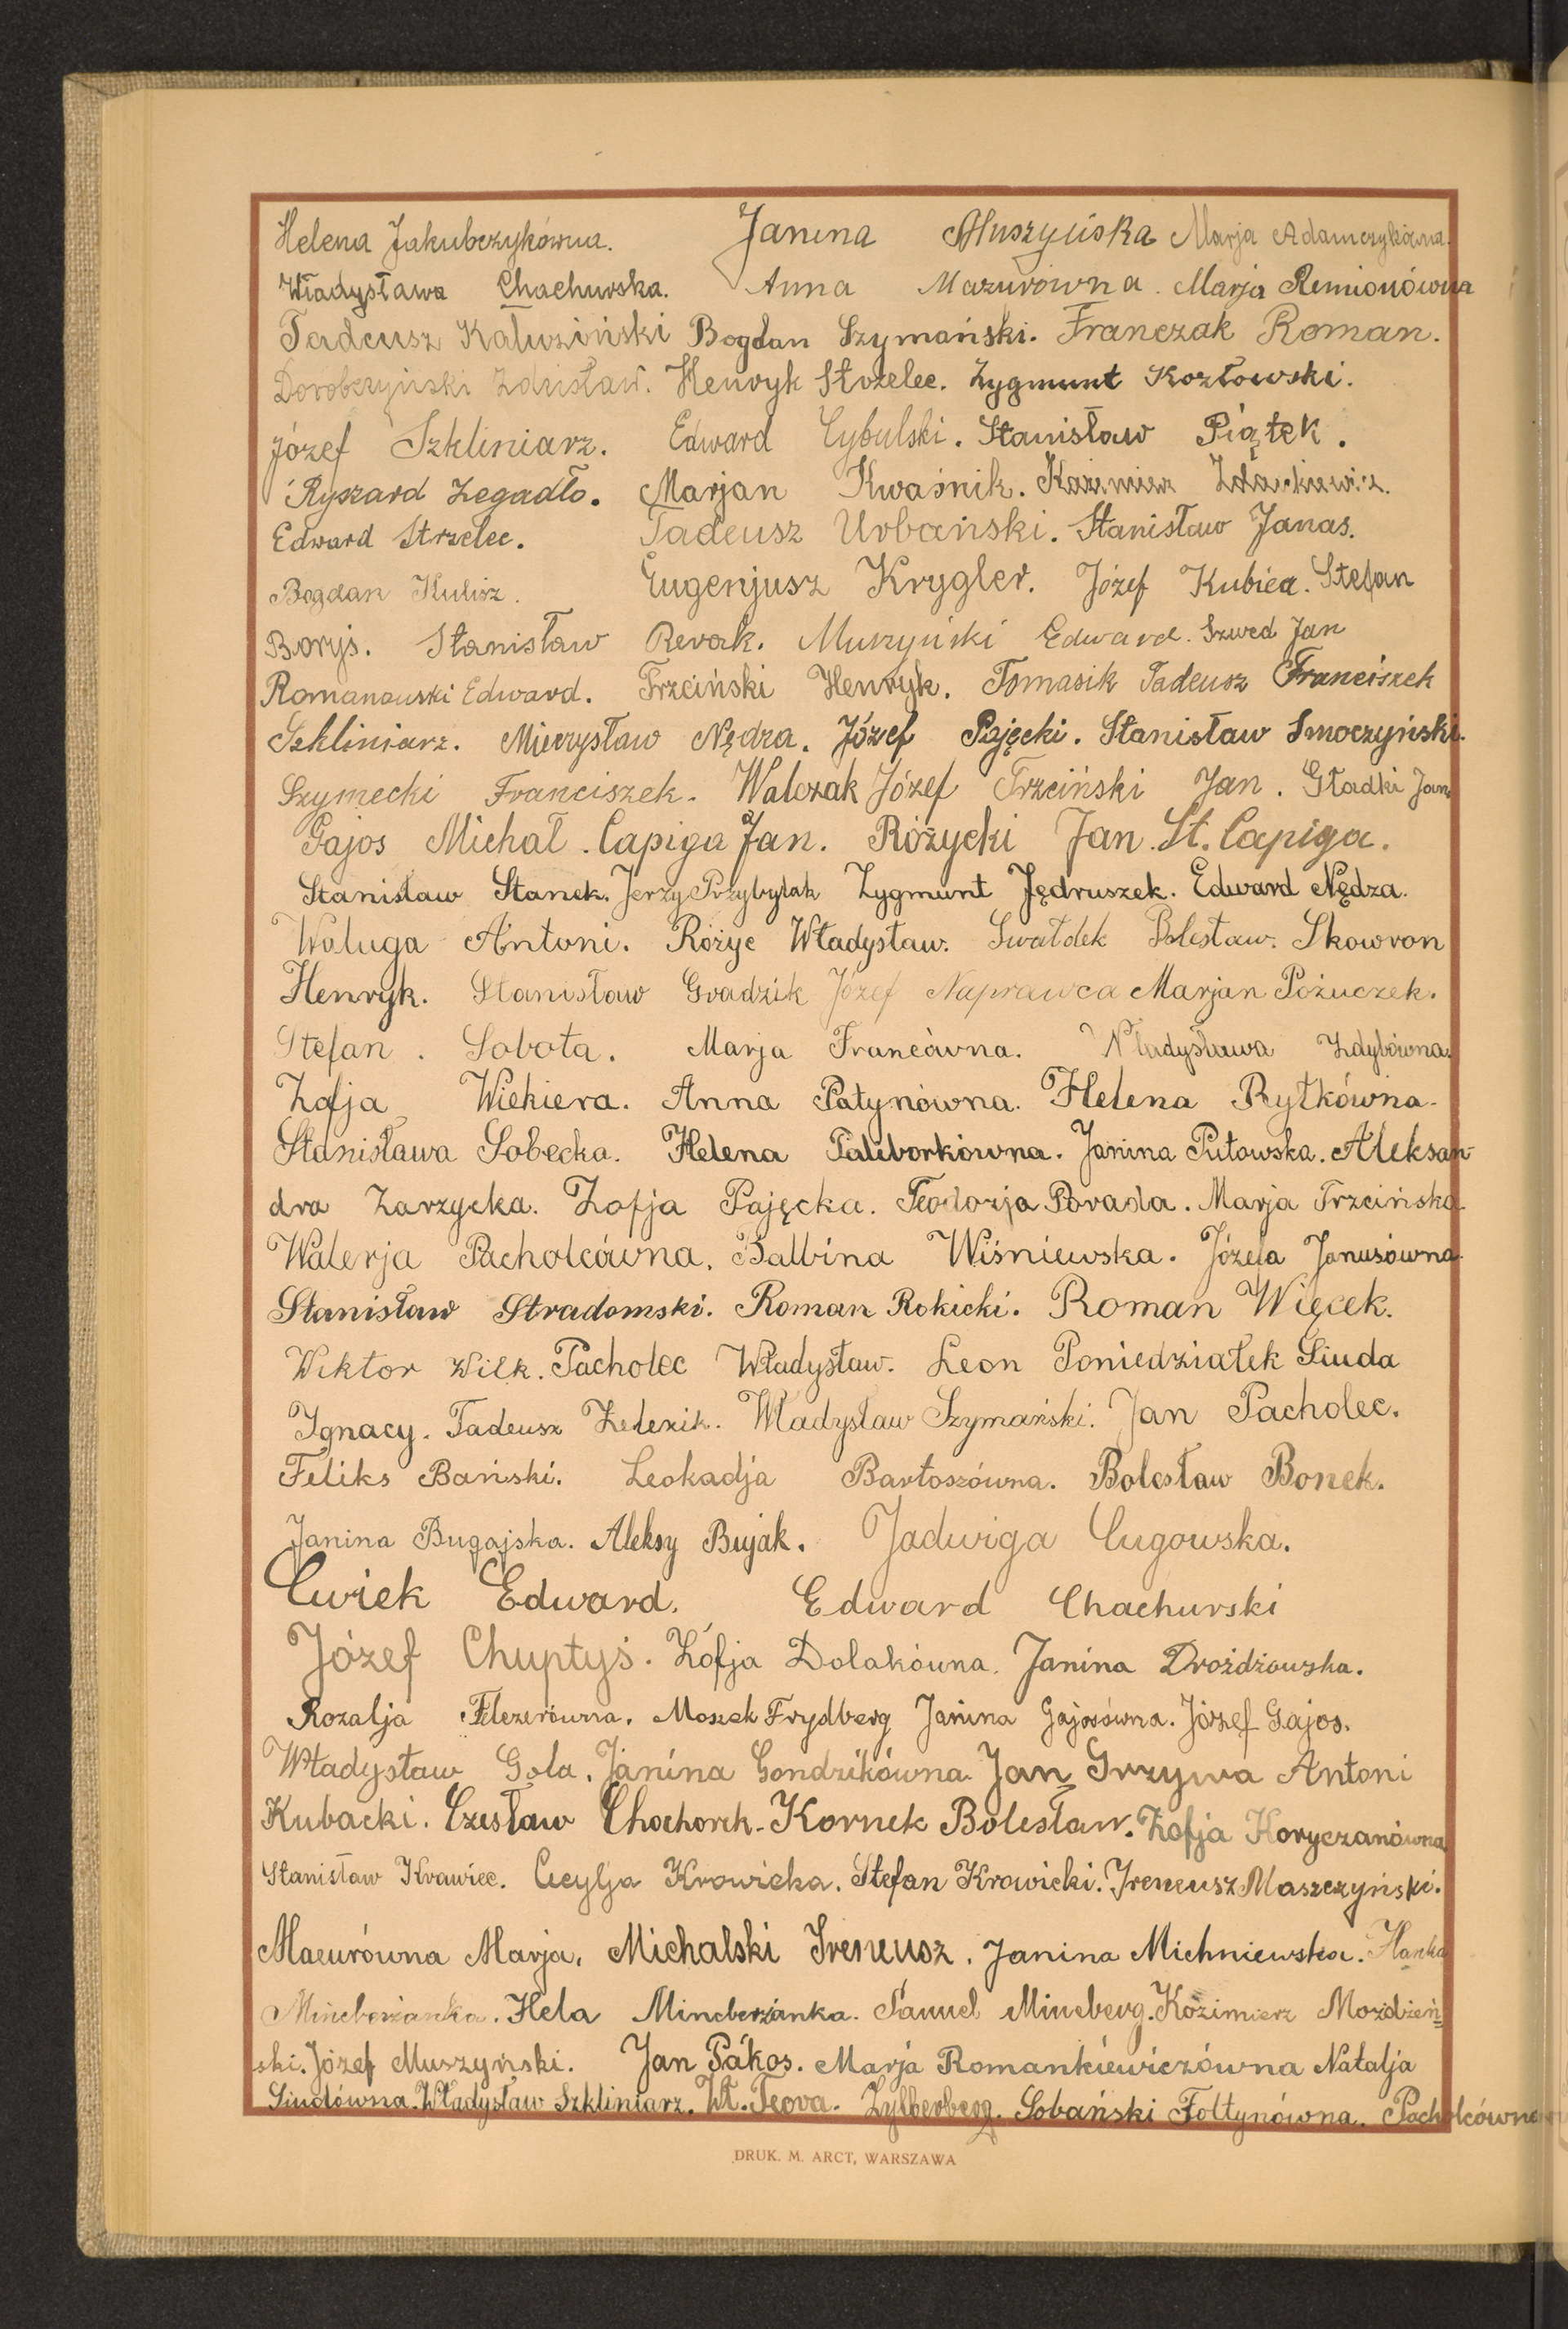 Helena Jakubczykówna. Janina Muszyńska Marja Adamczykówna.
Władysława Chachurska. Anna Mazurówna. Marja Remionówna
Tadeusz Kałuziński Bogdan Szymański. Franczak Roman.
Doroboczyński Zdzisław. Henryk Strzelec. Zygmunt Kozłowski.
Józef Szkliniarz. Edward Cybulski. Stanisław Piątek.
Ryszard Zegadło. Marjan Kwaśnik. Kazimierz
Edward Strzelec. Tadeusz Urbański. Stanisław Janas.
Bogdan Kulisz. Eugenjusz Krygler. Józef Kubica. Stefan
Borys. Stanisław Rerak. Muszyński Edward. Szwed Jan
Romanowski Edward. Trzciński Henryk. Tomasik Tadeusz Franciszek
Szkliniarz. Mieczysław Nędza. Józef Pajęcki. Stanisław Smoczyński.
Szymecki Franciszek. Walczak Józef Trzciński Jan. Gładki Jan
Gajos Michał. Capiga Jan. Różycki Jan. St. Capiga.
Stanisław Stanek. Jerzy Przybylak Zygmunt Jędruszek. Edward Nędza.
Waluga Antoni. Różyc Władysław. Swałdek Bolesław. Skowron
Henryk. Stanisław Gradzik Józef Naprawca Marjan Pożuczek.
Stefan. Sobota. Marja Francówna. Władysława Zdybówna.
Zofja Wiekiera. Anna Patynówna. Helena Rytkówna.
Stanisława Sobecka. Helena Paliborkówna. Janina Putowska. Aleksan-
dra Zarzycka. Zofja Pajęcka. Teodozja Porada. Marja Trzcińska.
Walerja Pacholcówna. Balbina Wiśniewska. Józefa Janusówna.
Stanisław Stradomski. Roman Rokicki. Roman Więcek.
Wiktor Wilk. Pacholec Władysław. Leon Poniedziałek Siuda
Ignacy. Tadeusz Żelezik. Władysław Szymański. Jan Pacholec.
Feliks Bański. Leokadja Bartoszówna. Bolesław Bonek.
Janina Bugajska. Aleksy Bujak. Jadwiga Cugowska.
Ćwiek Edward. Edward Chachurski
Józef Chuptyś. Zofja Dolakówna. Janina Drożdżowska.
Rozalja Felezerówna. Moszek Frydberg Janina Gajosówna. Józef Gajos.
Władysław Gola. Janina Gondzikówna. Jan Grzywa Antoni
Kubacki. Czesław Chochorek. Kornek Bolesław. Zofja Koryczanówna
Stanisław Krawiec. Cecylja Krawicka. Stefan Krawicki. Ireneusz Maszczyński.
Macurówna Marja. Michalski Ireneusz. Janina Michniewska. Hanka
Mincberżanka. Hela Mincberżanka. Samuel Mincberg. Kazimierz Moździeń=
ski. Józef Muszyński. Jan Pákos. Marja Romankiewiczówna Natalja
Siudówna. Władysław Szkliniarz. Wł. Teova. Zylberberg. Sobański Fołtynówna. Pacholcówna
DRUK. M. ARCT, WARSZAWA